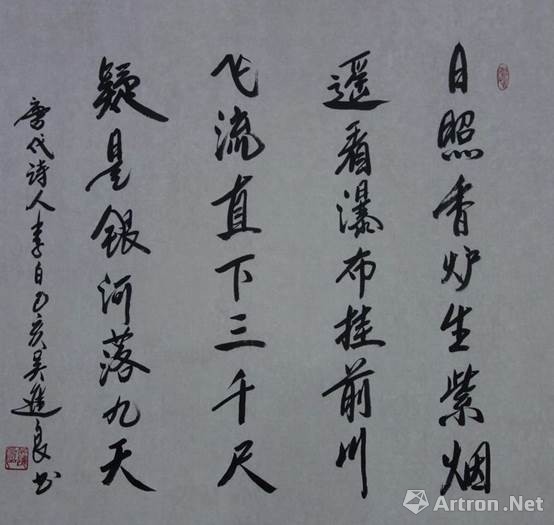 日照香炉生紫烟
遥看瀑布挂前川
飞流直下三千尺
疑是银河落九天
唐代诗人李白 亥吴进良书
Artron.Net